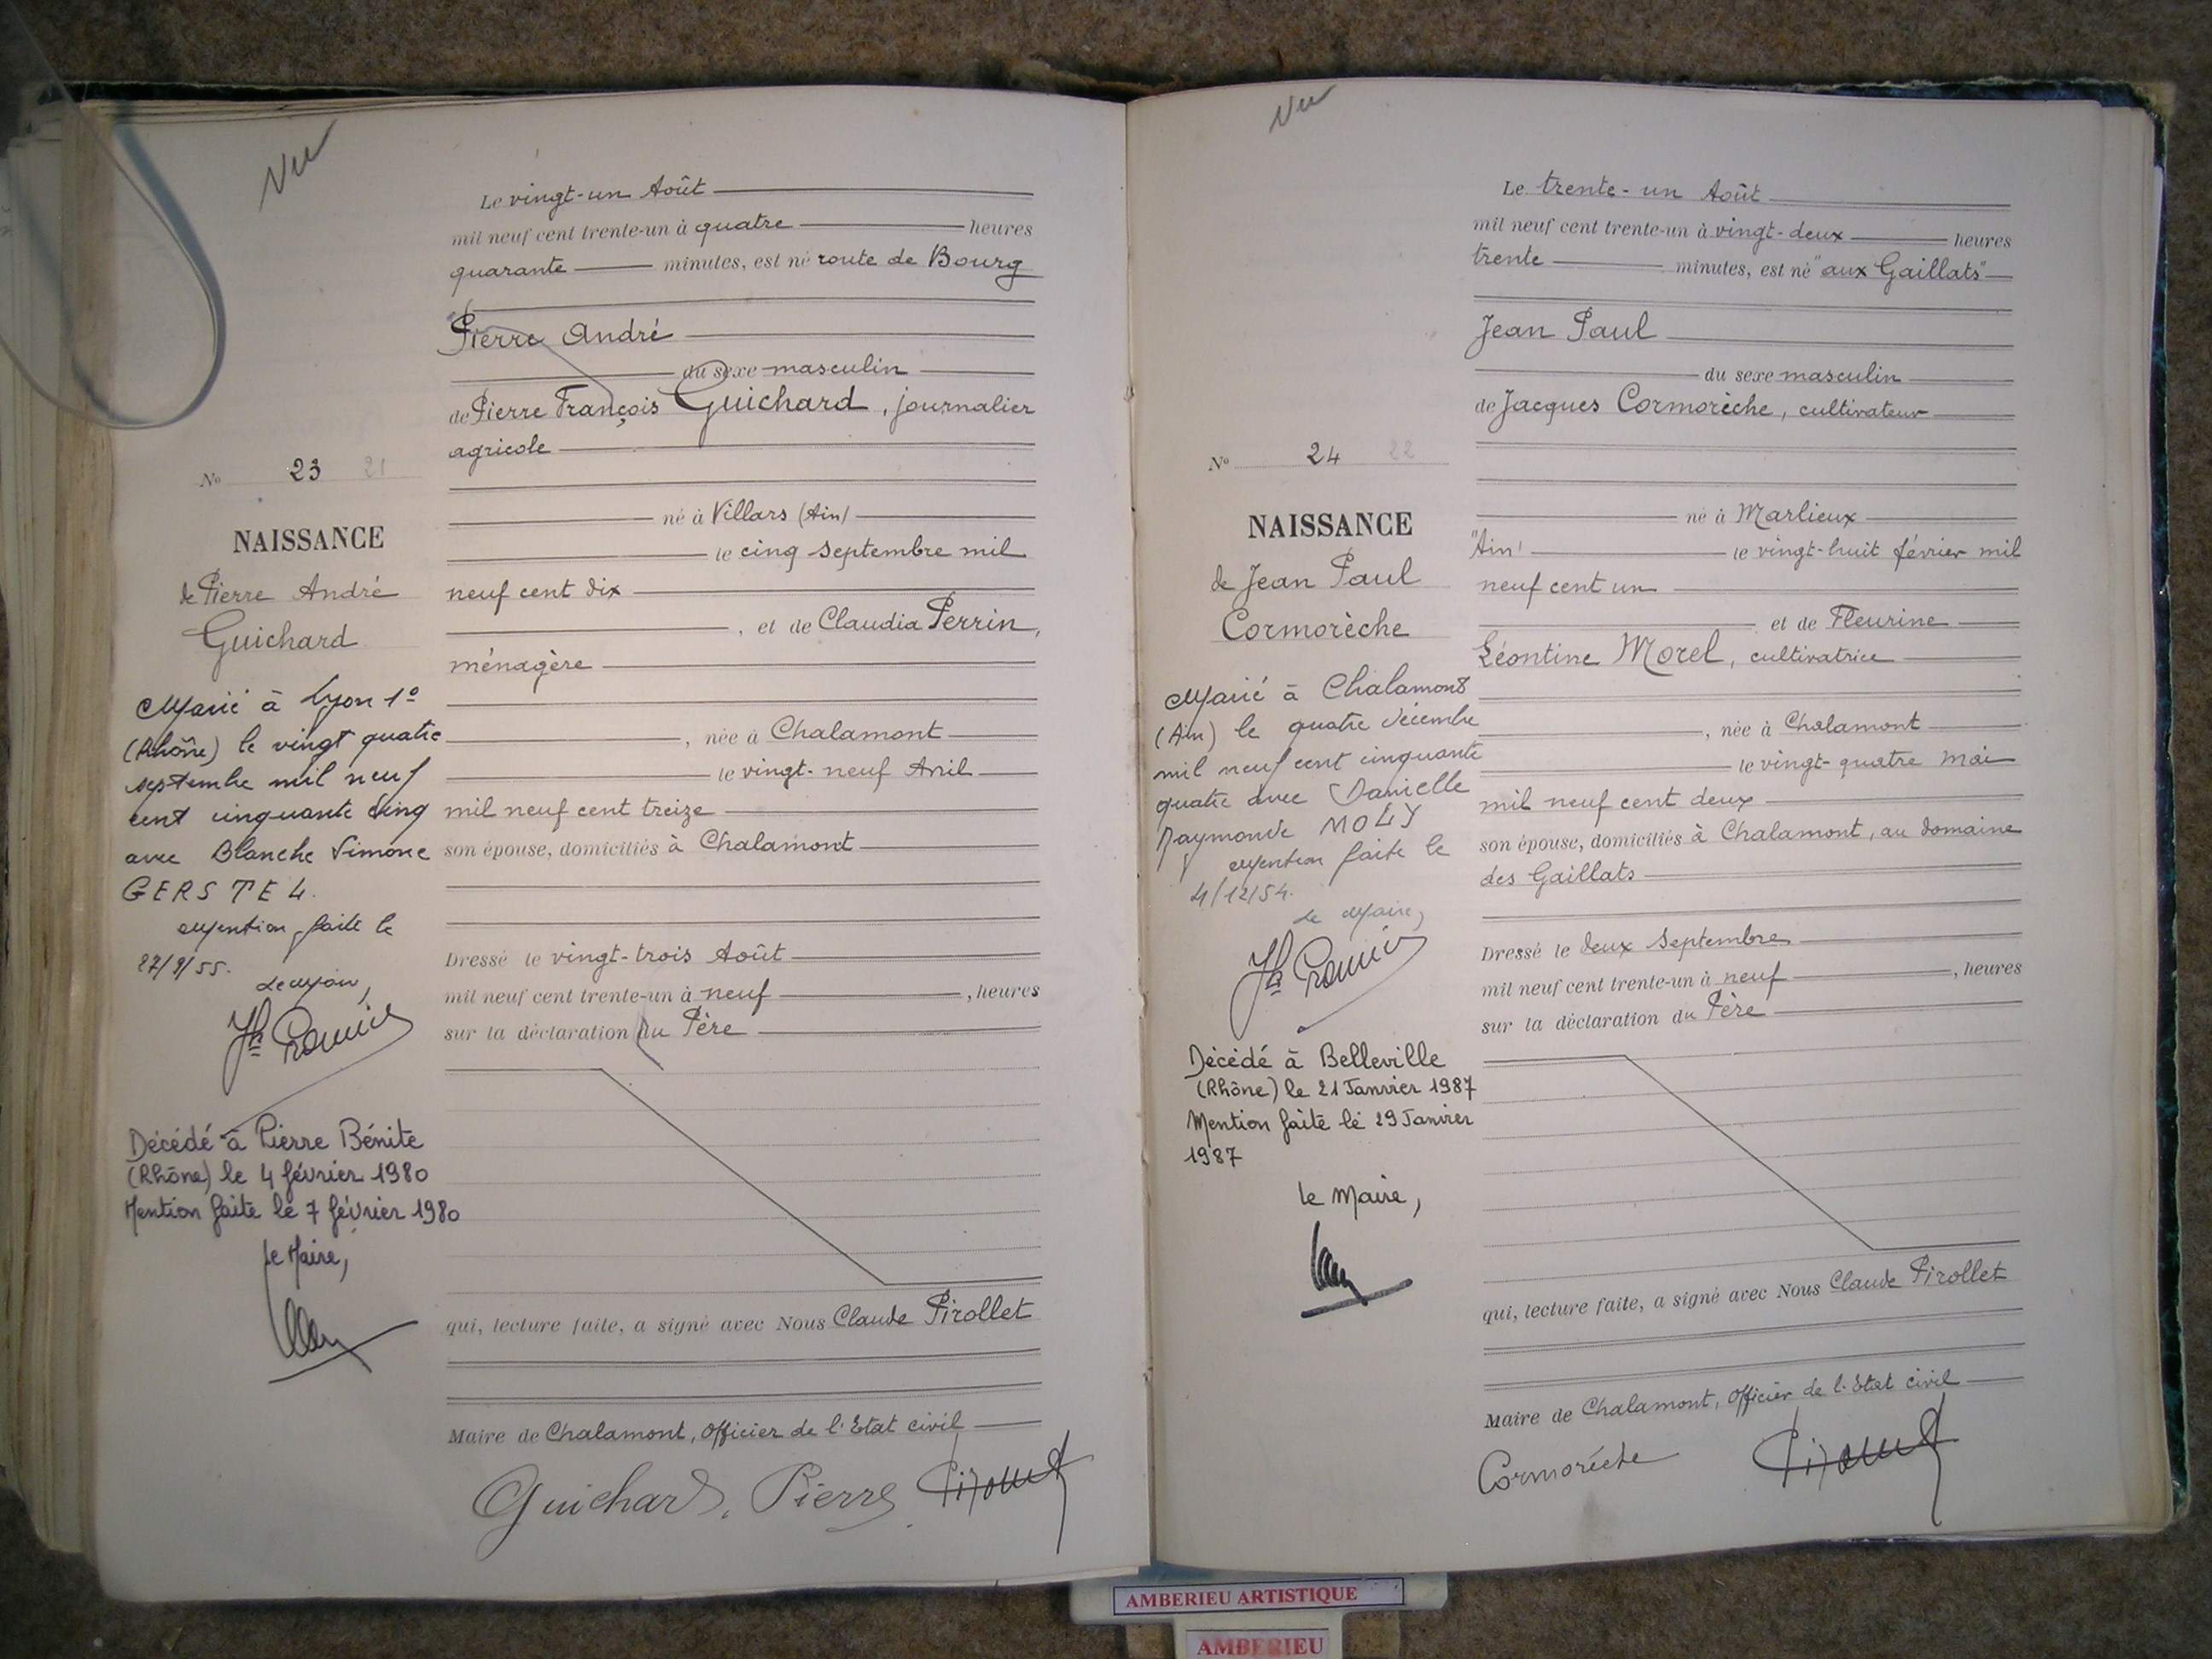 Vu
Le vingt-un Août
mil neuf cent trente-un à quatre heures
quarante minutes, est né route de Bourg
Pierre André
du sexe masculin
de Pierre François Guichard, journalier
agricole
né à Villars (Ain)
le cinq septembre mil
neuf cent dix
, et de Claudia Perrin,
ménagère
, née à Chalamont
le vingt-neuf Avril
mil neuf cent treize
son épouse, domiciliés à Chalamont
Dressé le vingt-trois Août
mil neuf cent trente-un à neuf , heures
sur la déclaration du Père
qui, lecture faite, a signé avec Nous Claude Pirollet
Maire de Chalamont, Officier de l'Etat civil
Guichard, Pierre Pirollet
No 23 21
NAISSANCE
de Pierre André
Guichard
Marié à Lyon 1º
(Rhône) le vingt quatre
septembre mil neuf
cent cinquante cinq
avec Blanche Simone
GERSTEL.
Mention faite le
27/9/55.
Le Maire,
Décédé à Pierre Bénite
(Rhône) le 4 février 1980
Mention faite le 7 février 1980
Le Maire,
Vu
Le trente-un Août
mil neuf cent trente-un à vingt-deux heures
trente minutes, est né "aux Gaillats"
Jean Paul
du sexe masculin
de Jacques Cormorèche, cultivateur
né à Marlieux
"Ain" le vingt-huit février mil
neuf cent un
et de Fleurine
Léontine Morel, cultivatrice
, née à Chalamont
le vingt-quatre Mai
mil neuf cent deux
son épouse, domiciliés à Chalamont, au domaine
des Gaillats
Dressé le deux Septembre
mil neuf cent trente-un à neuf , heures
sur la déclaration du Père
qui, lecture faite, a signé avec Nous Claude Pirollet
Maire de Chalamont, Officier de l'Etat civil
Cormorèche Pirollet
No 24 22
NAISSANCE
de Jean Paul
Cormorèche
Marié à Chalamont
(Ain) le quatre décembre
mil neuf cent cinquante
quatre avec Danielle
Raymonde MOLY
Mention faite le
4/12/54.
Le Maire,
Décédé à Belleville
(Rhône) le 21 Janvier 1987
Mention faite le 29 Janvier
1987
Le Maire,
AMBERIEU ARTISTIQUE
AMBERIEU